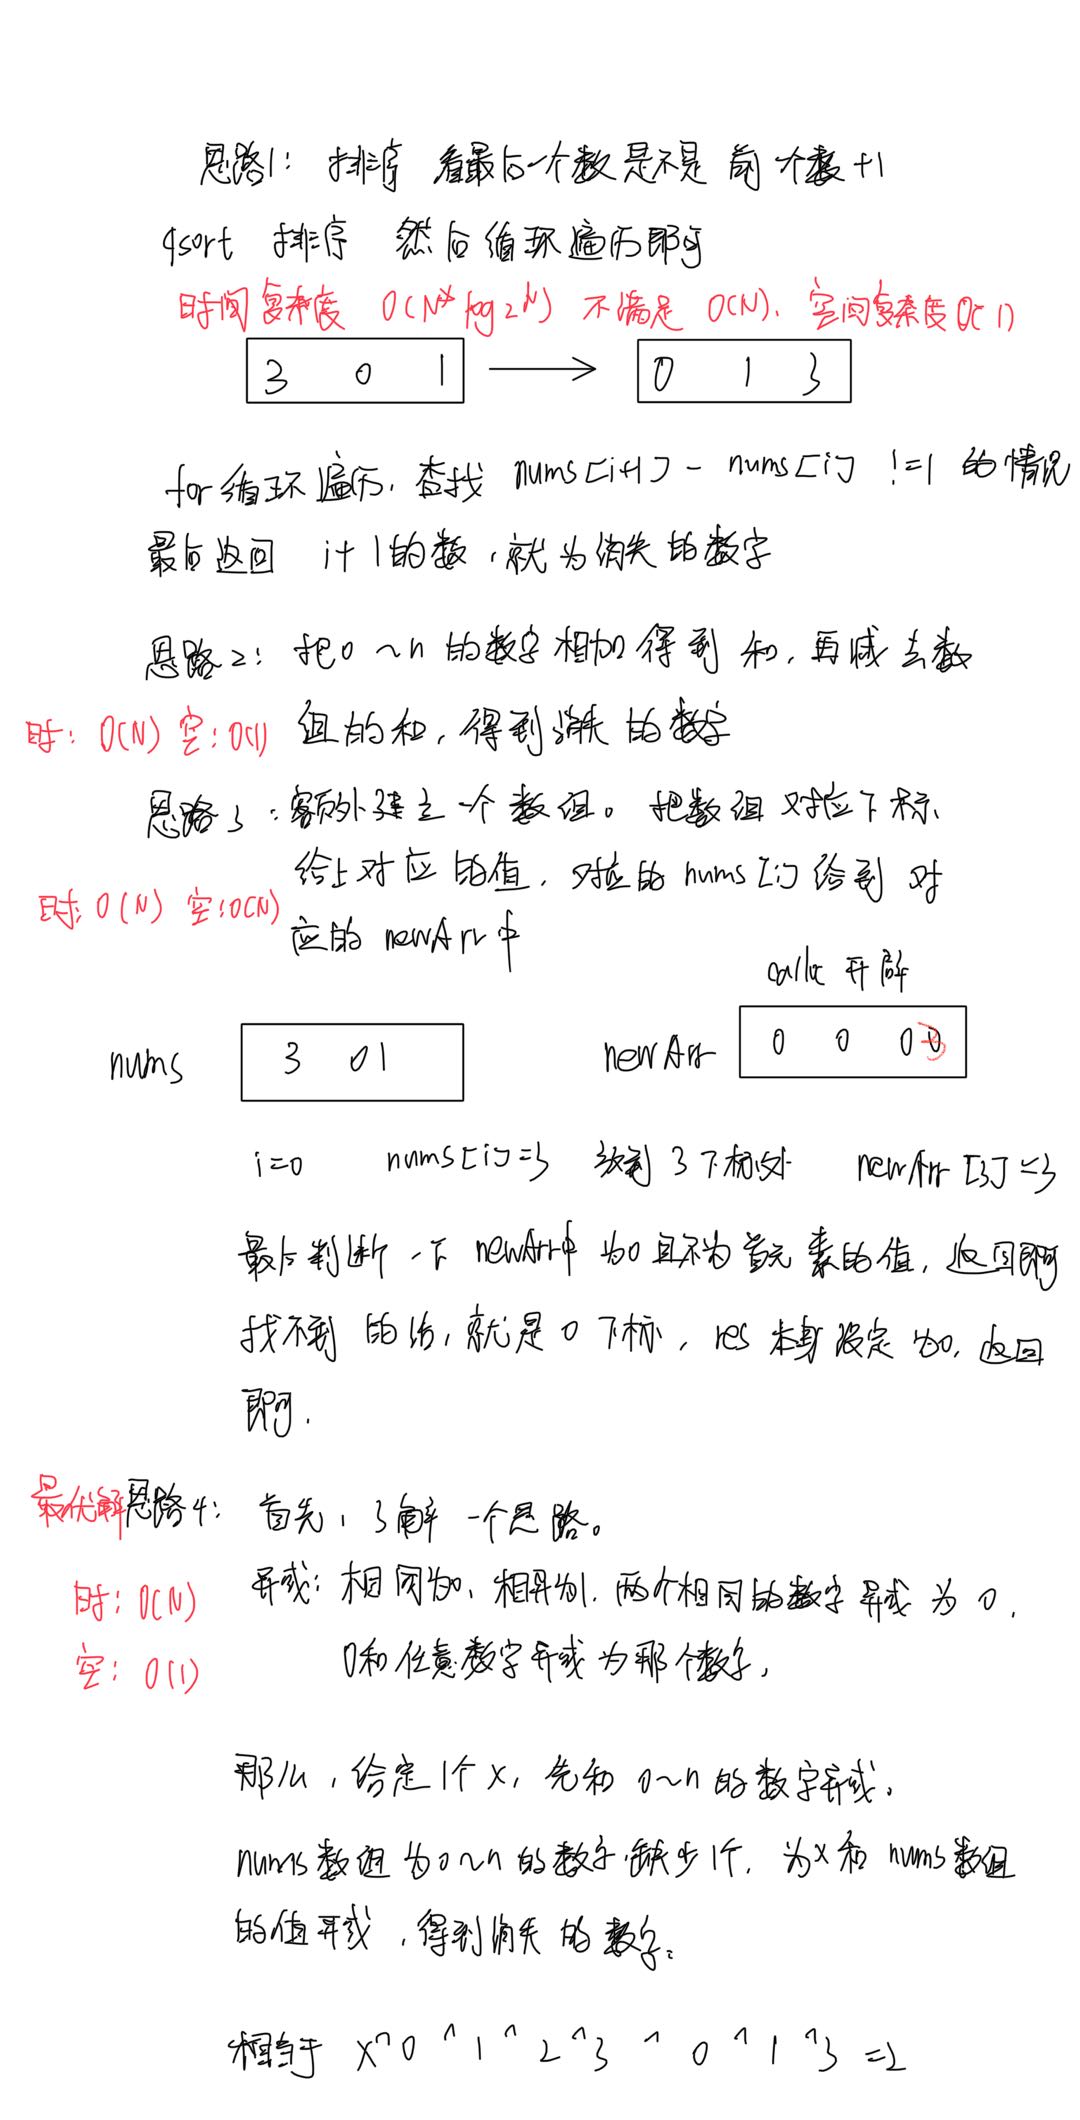 思路1: 排序 看最后一个数是不是 前一个数+1
qsort 排序 然后循环遍历即可
时间复杂度 O(N*log2N) 不满足 O(N). 空间复杂度O(1)
3 0 1 → 0 1 3
for循环遍历, 查找 nums[i+1] - nums[i] !=1 的情况
最后返回 i+1的数,就为消失的数字
思路2: 把0~n的数字相加得到和,再减去数
时: O(N) 空: O(1) 组的和,得到消失的数字
思路3: 额外建立一个数组。把数组对应下标
给上对应的值,对应的nums[i]给到对
时: O(N) 空: O(N)
应的newArr中
calloc 开辟
nums 3 0 1 newArr 0 0 0 0 3
i=0 nums[i]=3 放到3下标处 newArr[3]=3
最后判断一下 newArr中为0且不为首元素的值,返回即可
找不到的话,就是0下标,res本身设定为0,返回
即可.
最优解 思路4: 首先,了解一个思路。
异或: 相同为0,相异为1.两个相同的数字异或为0.
时: O(N)
0和任意数字异或为那个数字,
空: O(1)
那么,给定1个x,先和0~n的数字异或.
nums数组为0~n的数字缺少1个,为x和nums数组
的值异或,得到消失的数字。
相当于 x^0^1^2^3^0^1^3=2